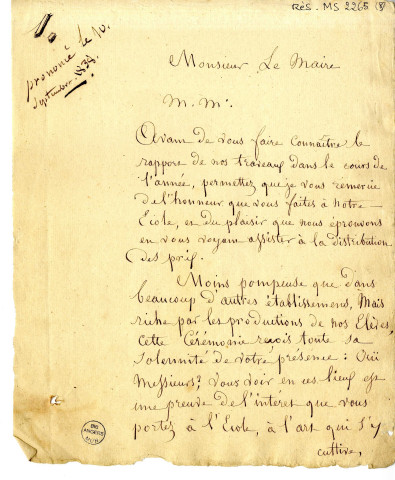 Rés. MS 2265 (8)
prononcé le 10.
Septembre 1838.
Monsieur Le Maire
M. M.
Avant de vous faire connaître le
rapport de nos travaux dans le cours de
l'année, permettez que je vous remercie
de l'honneur que vous faites à notre
Ecole, et du plaisir que nous éprouvons
en vous voyant assister à la distribution
des prix.
Moins pompeuse que dans
beaucoup d'autres établissemens, Mais
riche par les productions de nos Elèves,
cette Cérémonie reçois toute sa
solemnité de votre présence : Oui
Messieurs, vous voir en ces lieux est
une preuve de l'intéret que vous
portez à l'Ecole, à l'art qui s'y
cultive,
BIB
ANGERS
MUN